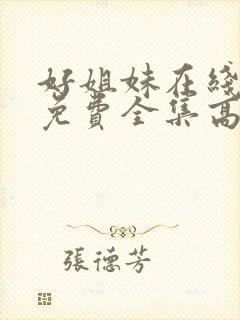 好姐妹在綫
免費全集高
張德芳